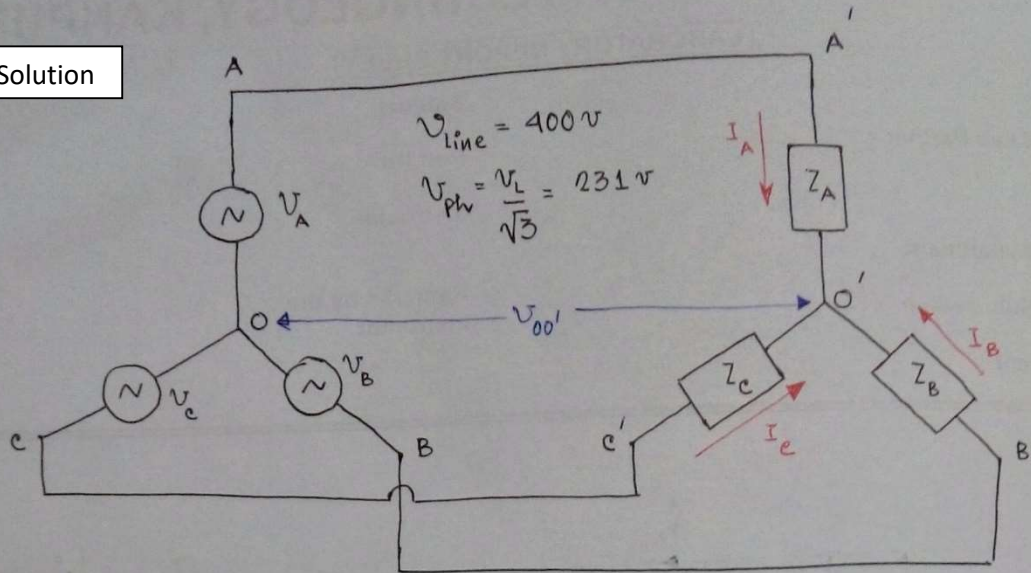 Solution
A
A'
V_line = 400 v
V_ph = V_L/√3 = 231 v
I_A
Z_A
V_A
O
V_OO'
O'
V_B
I_B
V_C
Z_C
Z_B
C
B
C'
I_C
B